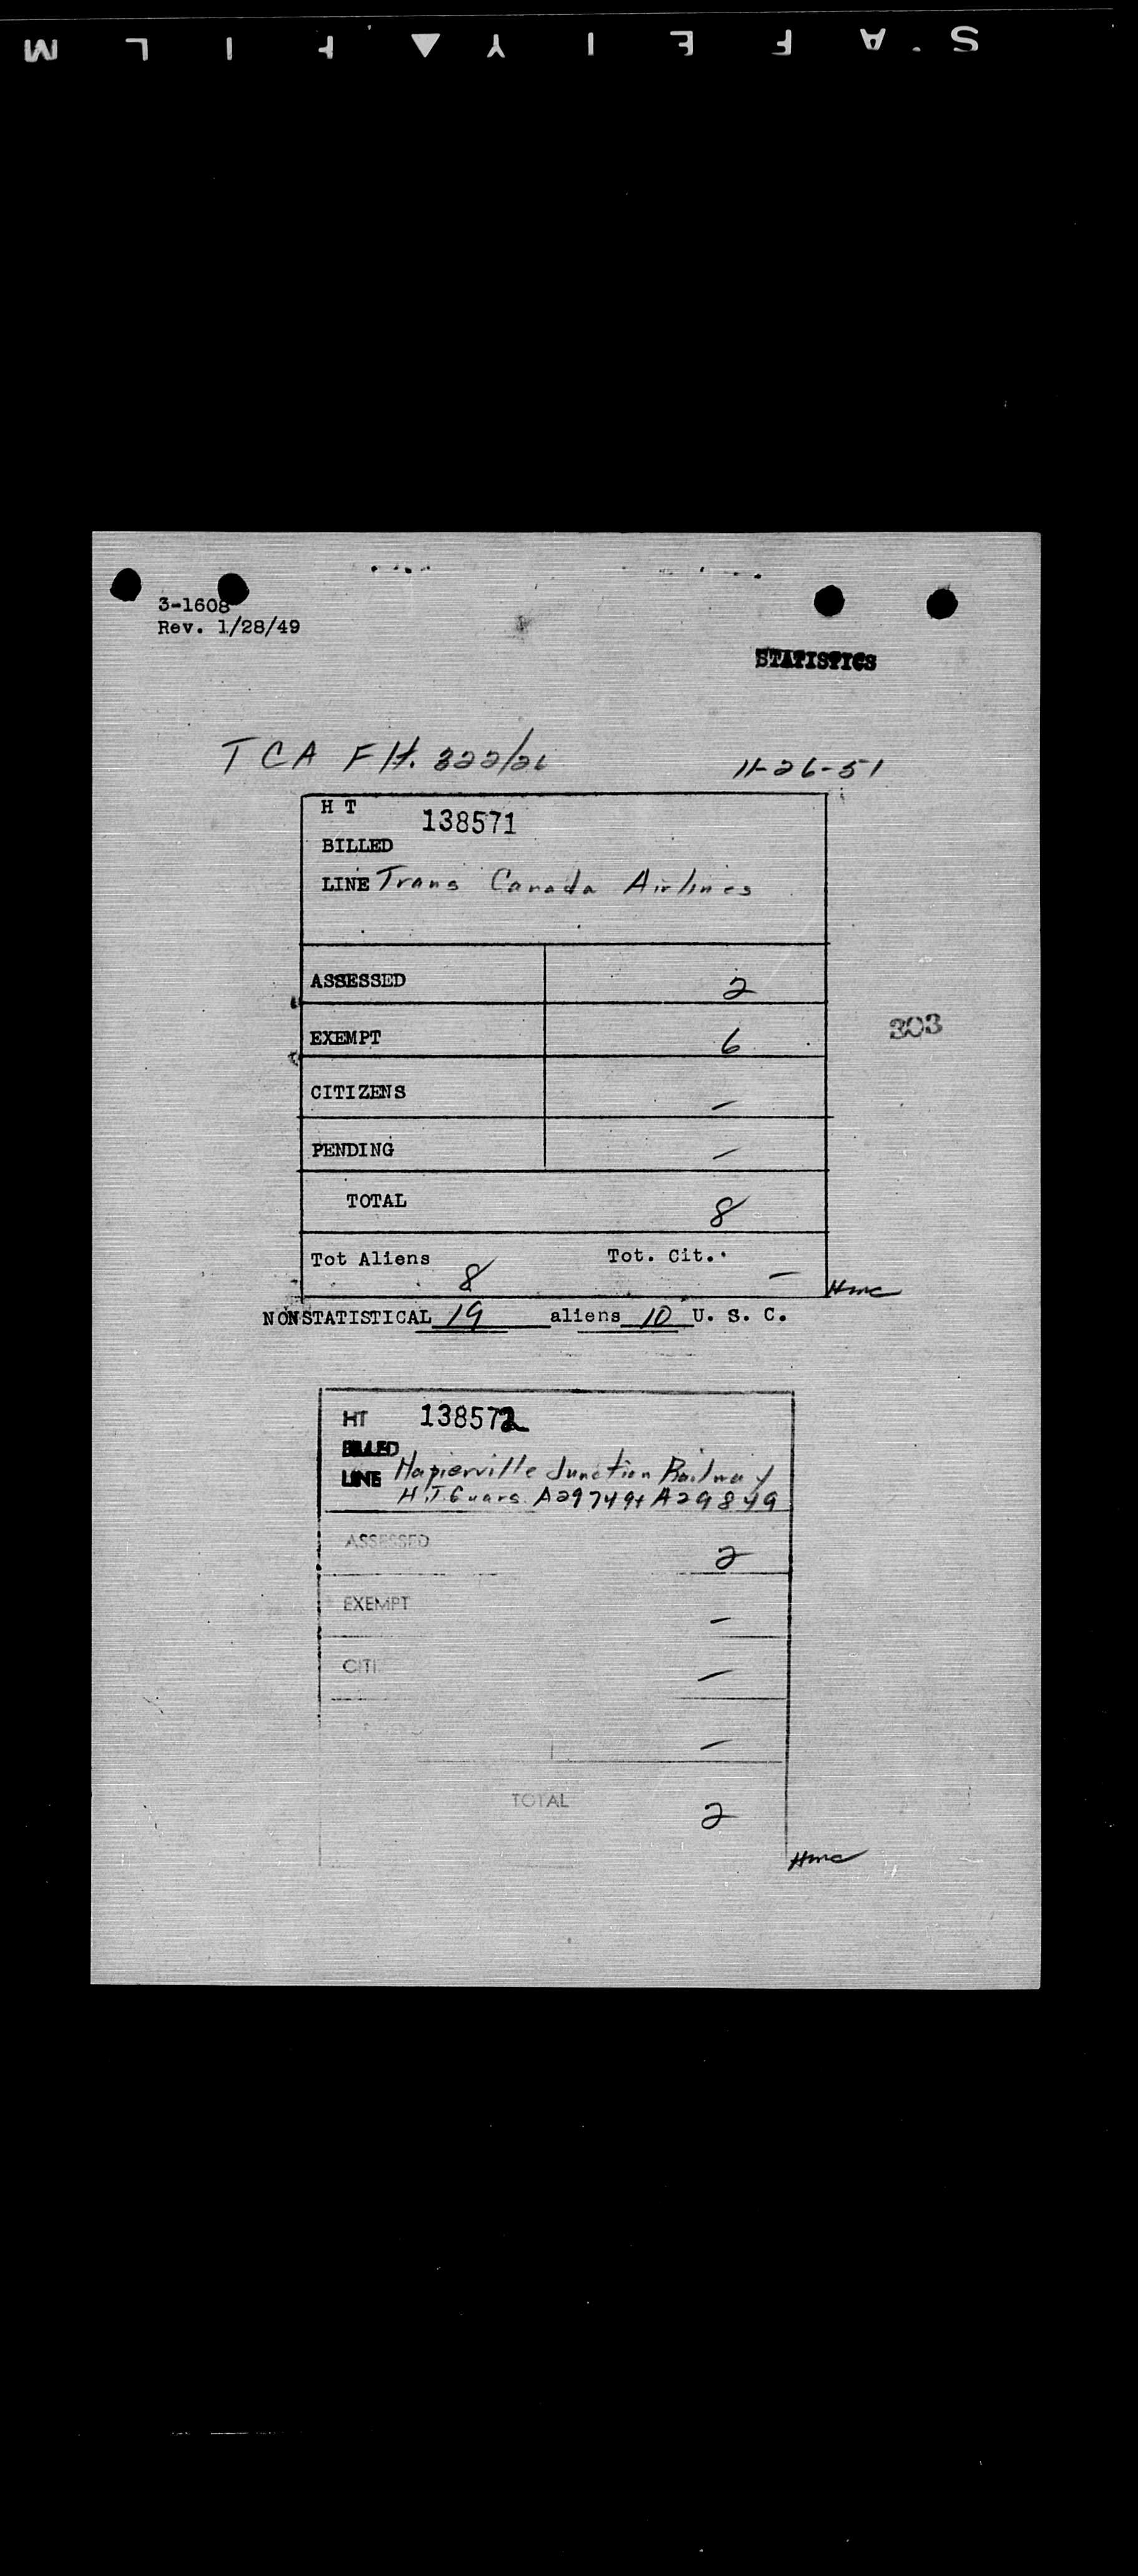 SAFETY FILM
3-1608
Rev. 1/28/49
STATISTICS
TCA Flt. 322/26 11-26-51
H T 138571
BILLED
LINE Trans Canada Airlines
ASSESSED 2
EXEMPT 6
303
CITIZENS –
PENDING –
TOTAL 8
Tot Aliens 8 Tot. Cit. –
Hmc
NONSTATISTICAL 19 aliens 10 U. S. C.
HT 138572
BILLED
LINE Napierville Junction Railway
H.T. Guars. A29749+ A29849
ASSESSED 2
EXEMPT –
CITI –
–
TOTAL 2
Hmc